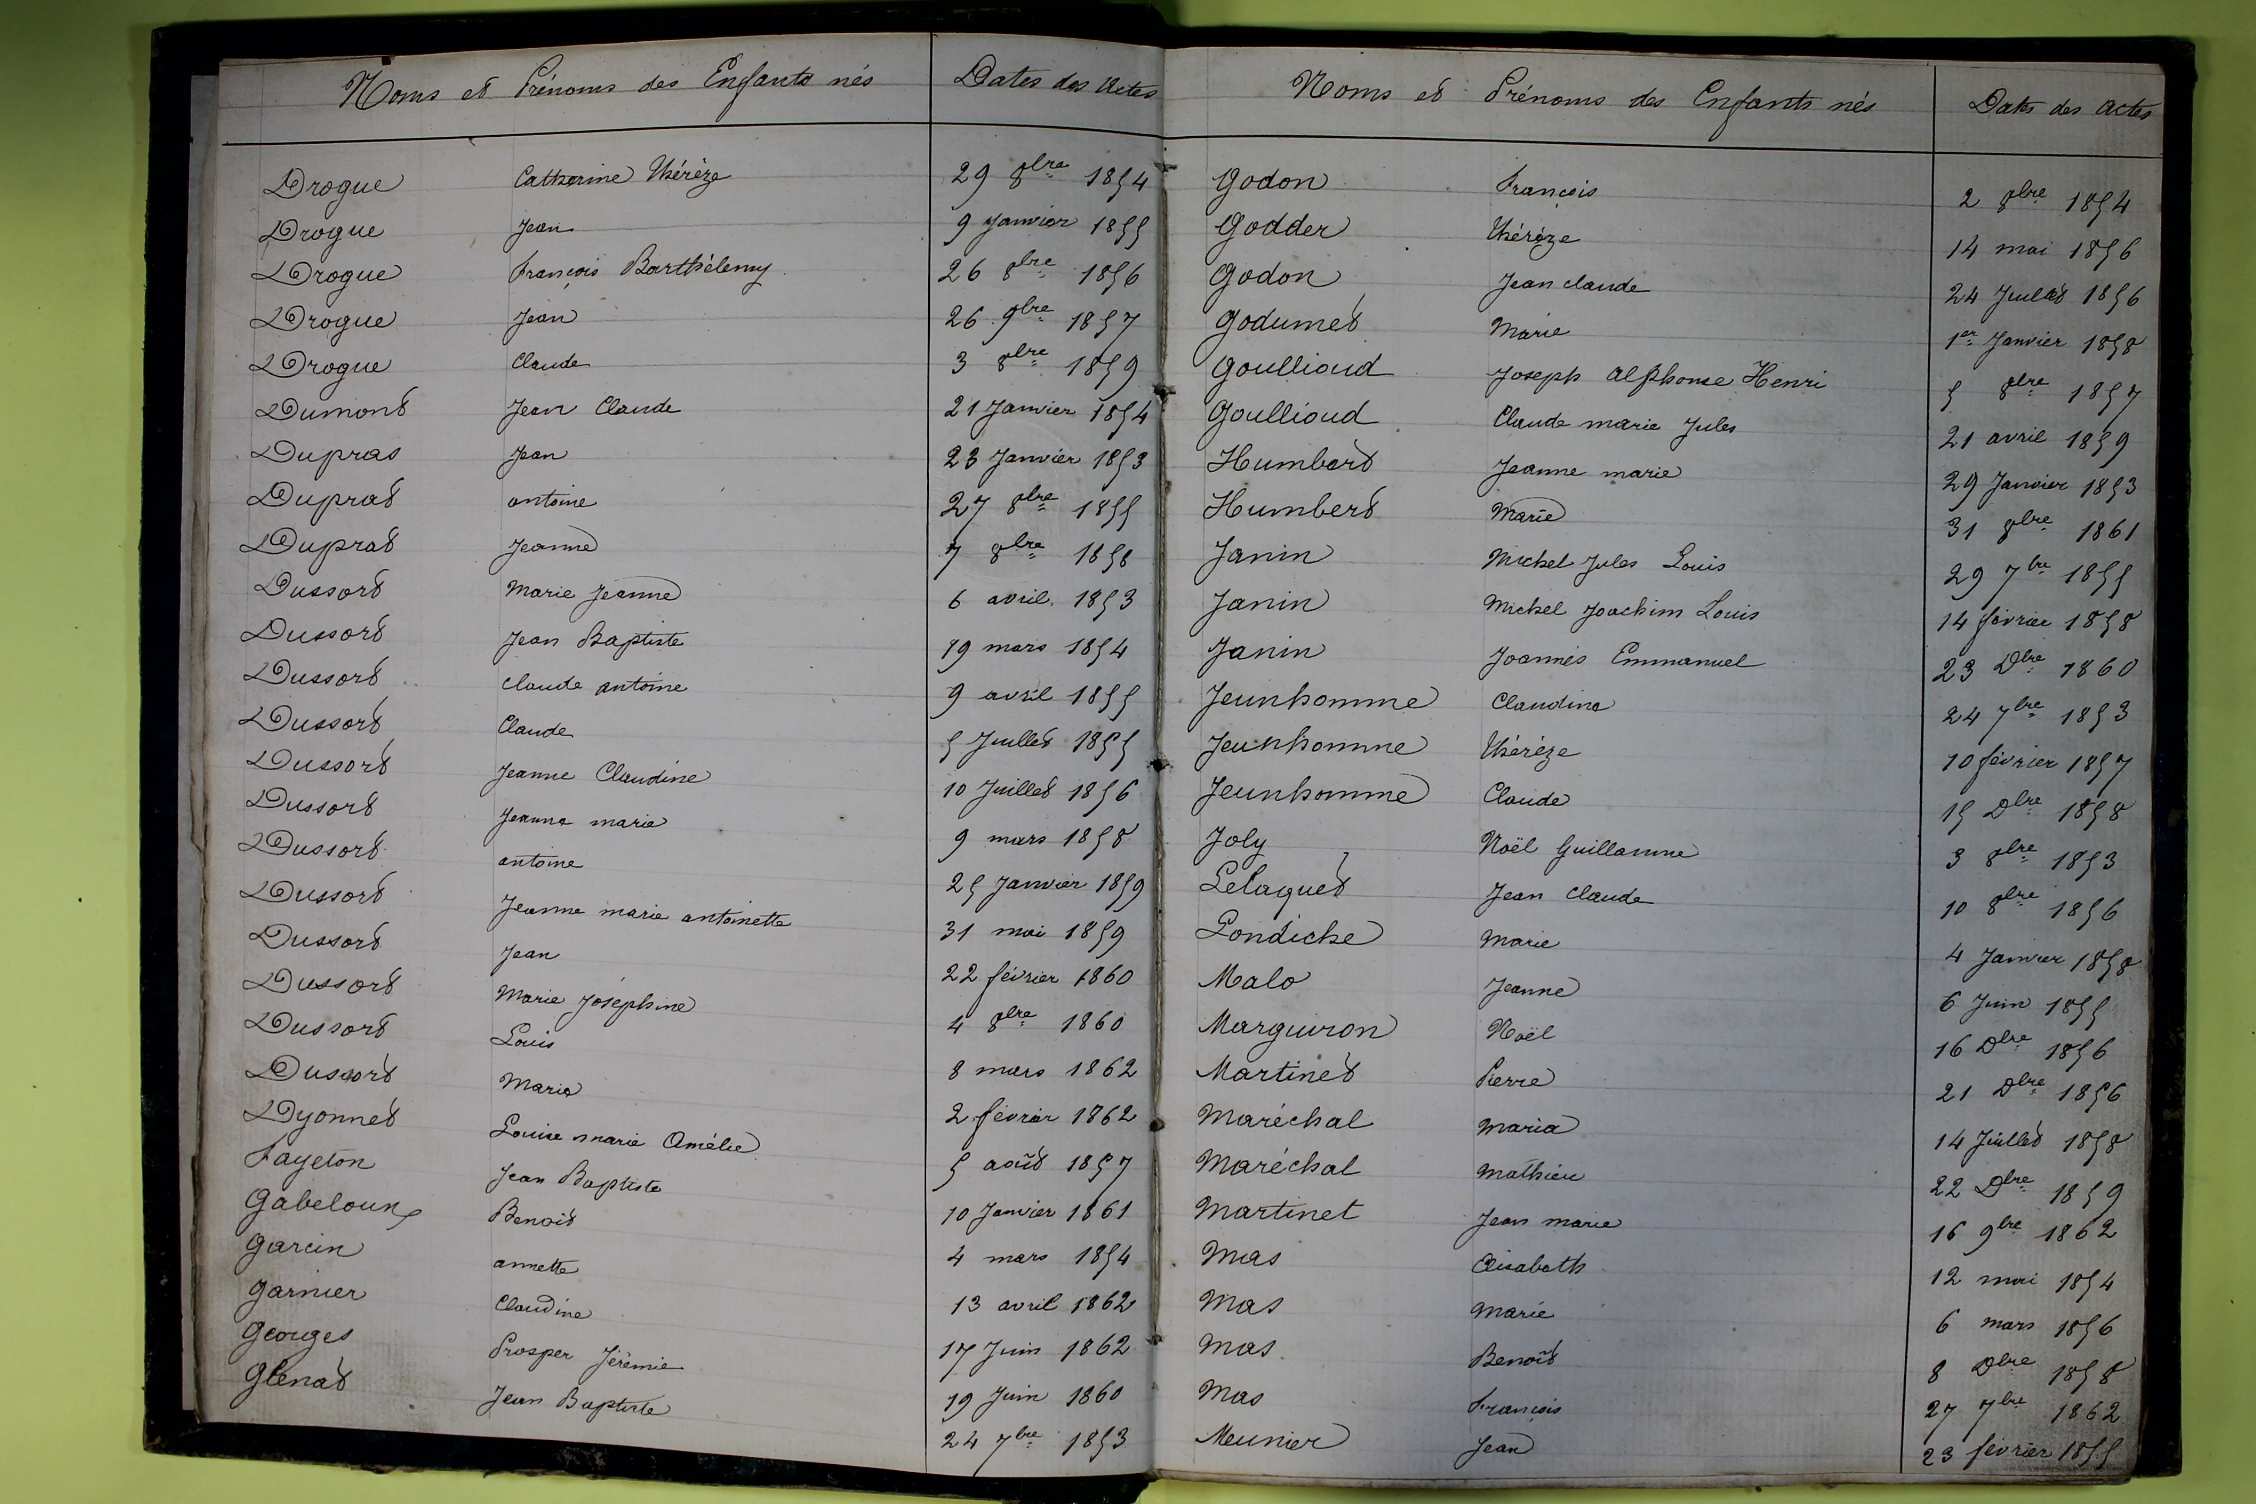 Noms et Prénoms des Enfants nés Dates des Actes
Drogue Catherine Thérèze 29 8bre 1854
Drogue Jean 9 Janvier 1855
Drogue François Barthélemy 26 8bre 1856
Drogue Jean 26 9bre 1857
Drogue Claude 3 8bre 1859
Dumont Jean Claude 21 Janvier 1854
Dupras Jean 23 Janvier 1853
Duprat antoine 27 8bre 1855
Duprat Jeanne 7 8bre 1858
Dussort Marie Jeanne 6 avril 1853
Dussort Jean Baptiste 19 mars 1854
Dussort claude antoine 9 avril 1855
Dussort Claude 5 Juillet 1855
Dussort Jeanne Claudine 10 Juillet 1856
Dussort Jeanne marie 9 mars 1858
Dussort antoine 25 Janvier 1859
Dussort Jeanne marie antoinette 31 mai 1859
Dussort Jean 22 février 1860
Dussort Marie Joséphine 4 8bre 1860
Dussort Louis 8 mars 1862
Dussort Maria 2 février 1862
Dyonnet Louise marie Amélie 5 août 1857
Fayeton Jean Baptiste 10 Janvier 1861
Gabeloux Benoit 4 mars 1854
Garcin annette 13 avril 1862
Garnier Claudine 17 Juin 1862
Georges Prosper Jérémie 19 Juin 1860
Glenat Jean Baptiste 24 7bre 1853
Noms et Prénoms des Enfants nés Dates des actes
Godon François 2 8bre 1854
Godder Thérèze 14 mai 1856
Godon Jean claude 24 Juillet 1856
Godumet Marie 1er Janvier 1858
Goullioud Joseph alphonse Henri 5 8bre 1857
Goullioud Claude marie Jules 21 avril 1859
Humbert Jeanne marie 29 Janvier 1853
Humbert Marie 31 8bre 1861
Janin Michel Jules Louis 29 7bre 1855
Janin Michel Joachim Louis 14 février 1858
Janin Joannès Emmanuel 23 Dbre 1860
Jeunhomme Claudine 24 7bre 1853
Jeunhomme Thérèze 10 février 1857
Jeunhomme Claude 15 Dbre 1858
Joly Noël Guillaume 3 8bre 1853
Lelaquet Jean Claude 10 8bre 1856
Londiche Marie 4 Janvier 1858
Malo Jeanne 6 Juin 1855
Marguiron Noël 16 Dbre 1856
Martinet Pierre 21 Dbre 1856
Maréchal Maria 14 Juillet 1858
Maréchal Mathieu 22 Dbre 1859
Martinet Jean marie 16 9bre 1862
Mas Elisabeth 12 mai 1854
Mas Marie 6 mars 1856
Mas Benoît 8 Dbre 1858
Mas François 27 7bre 1862
Meunier Jean 23 février 1855